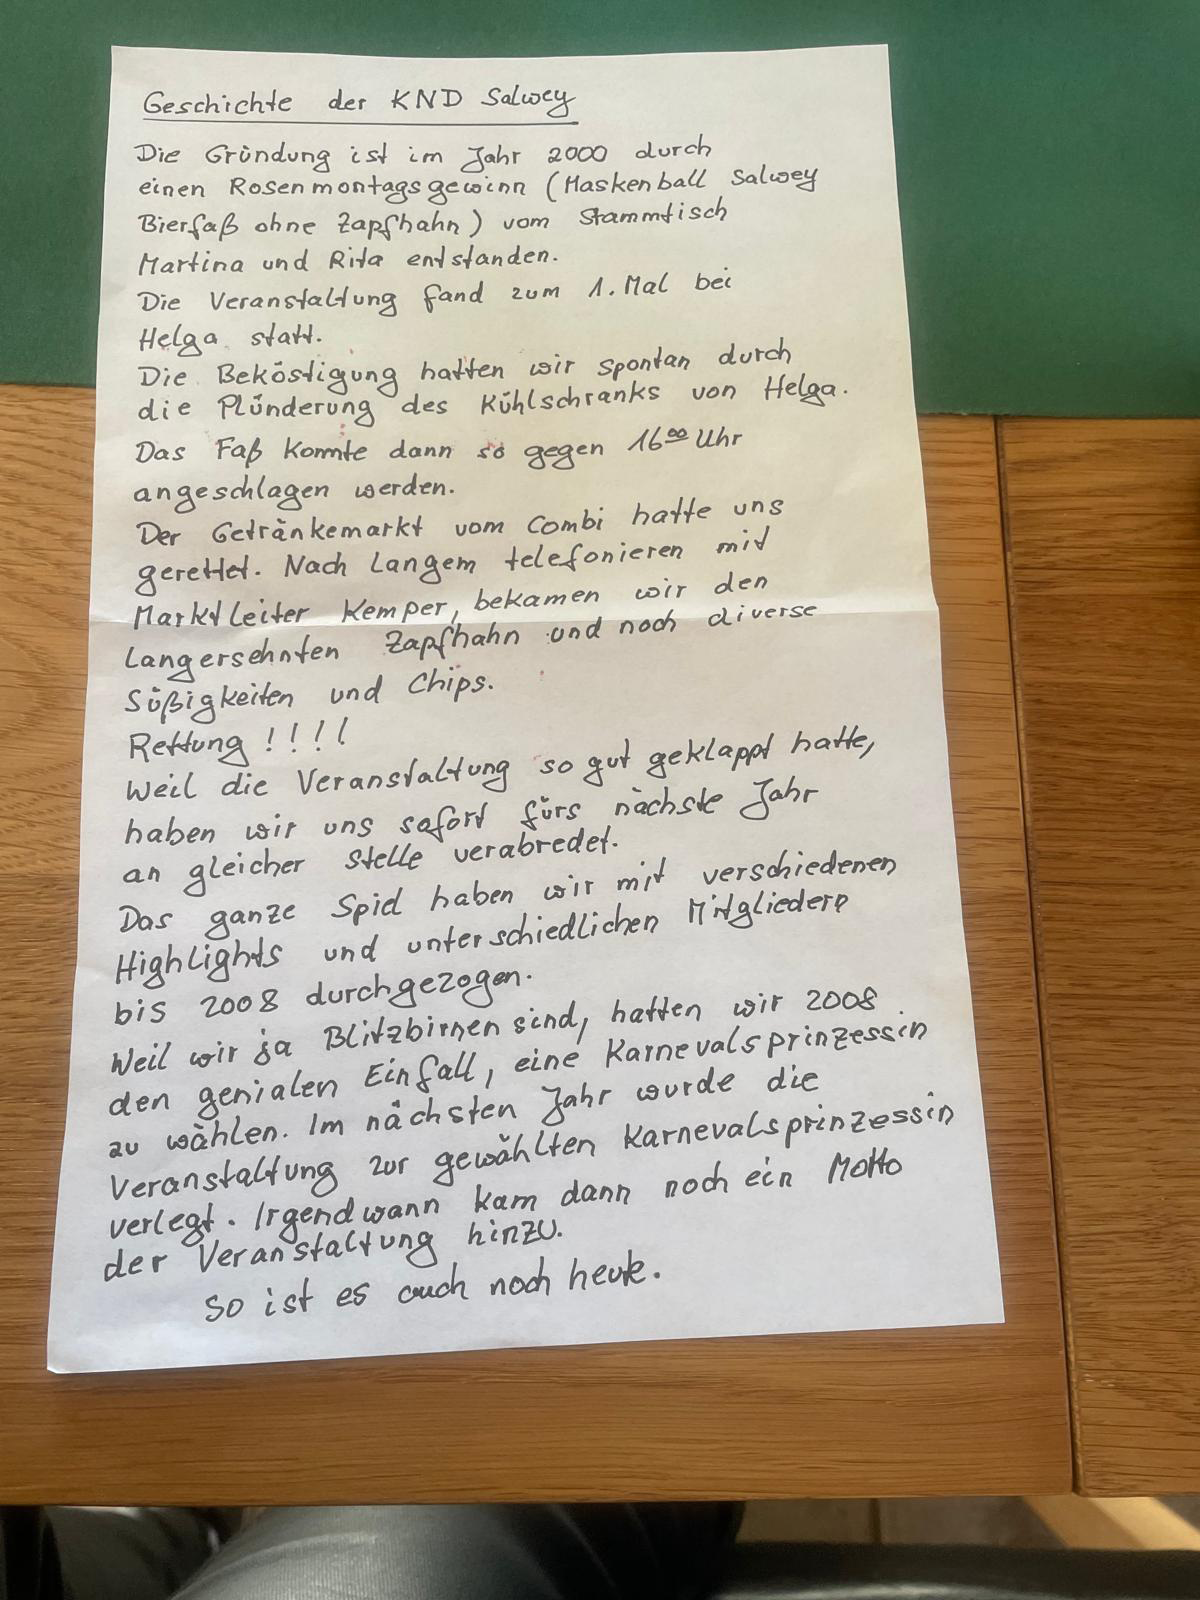 Geschichte der KND Salwey
Die Gründung ist im Jahr 2000 durch
einen Rosenmontagsgewinn (Maskenball Salwey
Bierfaß ohne Zapfhahn) vom Stammtisch
Martina und Rita entstanden.
Die Veranstaltung fand zum 1. Mal bei
Helga statt.
Die Beköstigung hatten wir spontan durch
die Plünderung des Kühlschranks von Helga.
Das Faß konnte dann so gegen 16⁰⁰ Uhr
angeschlagen werden.
Der Getränkemarkt vom Combi hatte uns
gerettet. Nach Langem telefonieren mit
Marktleiter Kemper, bekamen wir den
Langersehnten Zapfhahn und noch diverse
Süßigkeiten und Chips.
Rettung !!!!
Weil die Veranstaltung so gut geklappt hatte,
haben wir uns sofort fürs nächste Jahr
an gleicher Stelle verabredet.
Das ganze Spiel haben wir mit verschiedenen
Highlights und unterschiedlichen Mitgliedern
bis 2008 durchgezogen.
Weil wir ja Blitzbirnen sind, hatten wir 2008
den genialen Einfall, eine Karnevalsprinzessin
zu wählen. Im nächsten Jahr wurde die
Veranstaltung zur gewählten Karnevalsprinzessin
verlegt. Irgendwann kam dann noch ein Motto
der Veranstaltung hinzu.
So ist es auch noch heute.